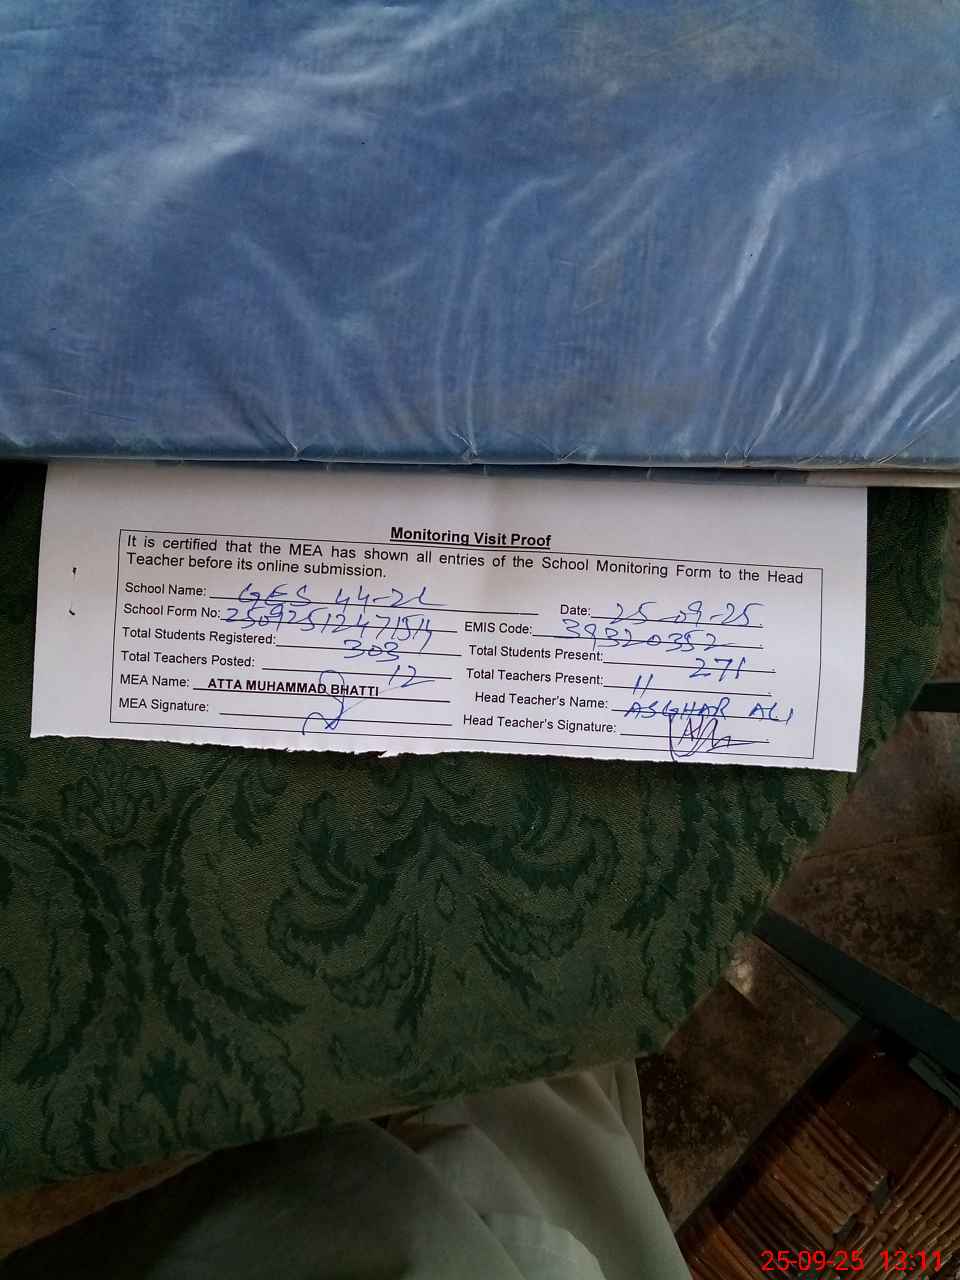 Monitoring Visit Proof
It is certified that the MEA has shown all entries of the School Monitoring Form to the Head
Teacher before its online submission.
School Name: GES 44-2L Date: 25-09-25
School Form No: EMIS Code: 39320352
Total Students Registered: 303 Total Students Present: 271
Total Teachers Posted: 12 Total Teachers Present: 11
MEA Name: ATTA MUHAMMAD BHATTI Head Teacher's Name: ASGHAR ALI
MEA Signature: Head Teacher's Signature:
25-09-25 13:11